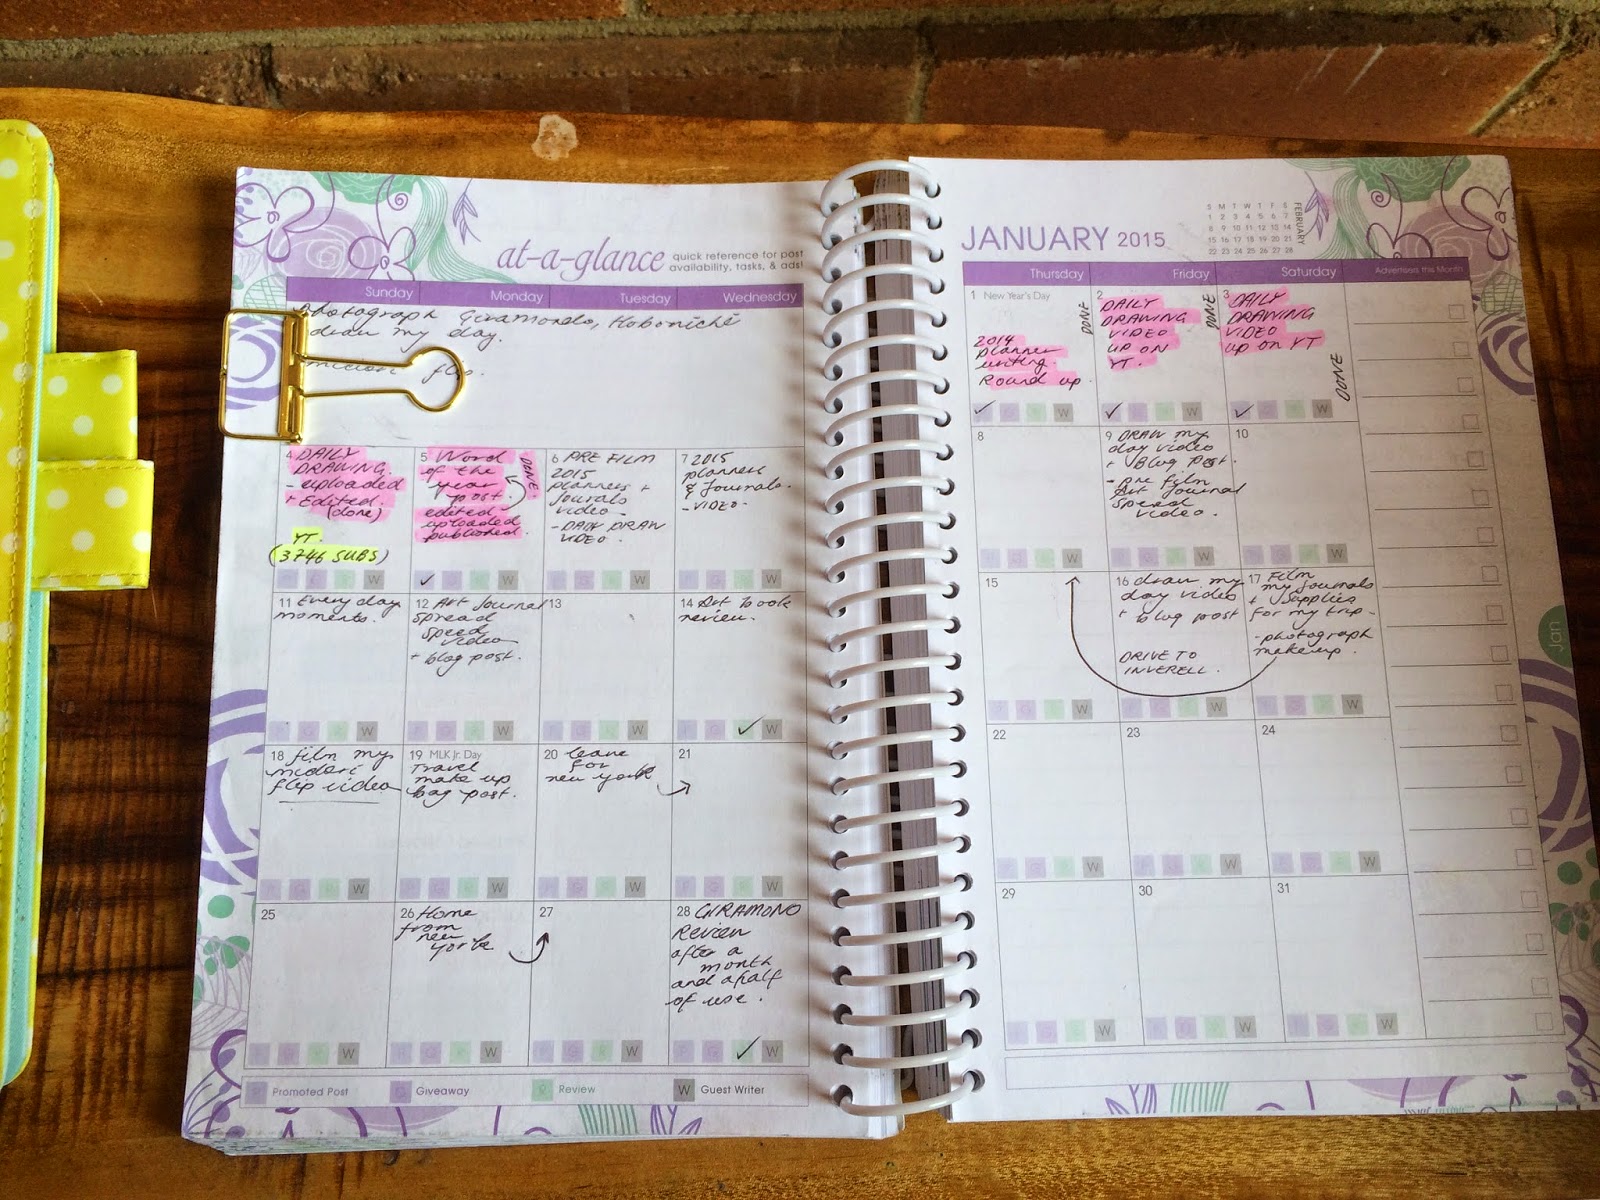 at-a-glance
quick reference for post
availability, tasks, & ads!
Sunday Monday Tuesday Wednesday
Photograph Hobonichi
draw my day.
4 DAILY
DRAWING.
- uploaded
+ Edited.
(done)
YT.
(3746 SUBS)
W
5 Word
of the
year
post.
edited-
uploaded
published.
DONE.
G R W
6 PRE FILM
2015
planners +
Journals
video -
- DAILY DRAW
VIDEO.
P G R W
7 2015
planners
& Journals.
- VIDEO -
P G R W
11 Every day
moments.
P G R W
12 Art Journal
Spread
Speed
video
+ blog post.
P G R W
13
P G R W
14 Art book
review.
P G W
18 film my
midori
flip video
P G R W
19 MLK Jr. Day
Travel
make up
bag post.
P G R W
20 leave
for
new york
P G R W
21
P G R W
25
P G R W
26 Home
from
new
yorke
P G R W
27
P G R W
28 GIRAMONO
Review
after a
month
and a half
of use.
P G W
P Promoted Post
G Giveaway
R Review
W Guest Writer
JANUARY 2015
FEBRUARY
S M T W T F S
1 2 3 4 5 6 7
8 9 10 11 12 13 14
15 16 17 18 19 20 21
22 23 24 25 26 27 28
Thursday Friday Saturday Advertisers this Month
1 New Year's Day
DONE
2014
planner
Round up.
G R W
2 DAILY
DRAWING
VIDEO
UP ON
YT.
DONE
G R W
3 DAILY
DRAWING
VIDEO
up on YT
DONE
G R W
8
P G R W
9 DRAW my
day video
+ Blog post.
- pre film
Art Journal
Spread
video.
P G R W
10
P G R W
15
P G R W
16 draw my
day video
+ blog post
DRIVE TO
INVERELL.
P G R W
17 Film
my journals
+ supplies
for my trip -
- photograph
makeup.
P G R W
22
P G R W
23
P G R W
24
P G R W
29
P G R W
30
P G R W
31
P G R W
Jan